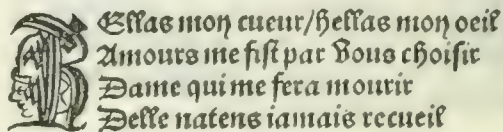 HEllas mon cueur/hellas mon oeil
Amours me fist par vous choisir
Dame qui me fera mourir
Delle natens iamais recueil